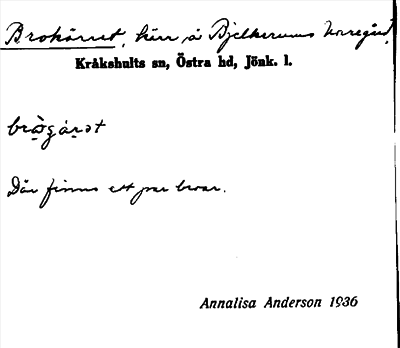 Brokärret, kärr å Bjelkerums Norregård,
Kråkshults sn, Östra hd, Jönk. l.
Där finns ett par broar.
Annalisa Anderson 1936